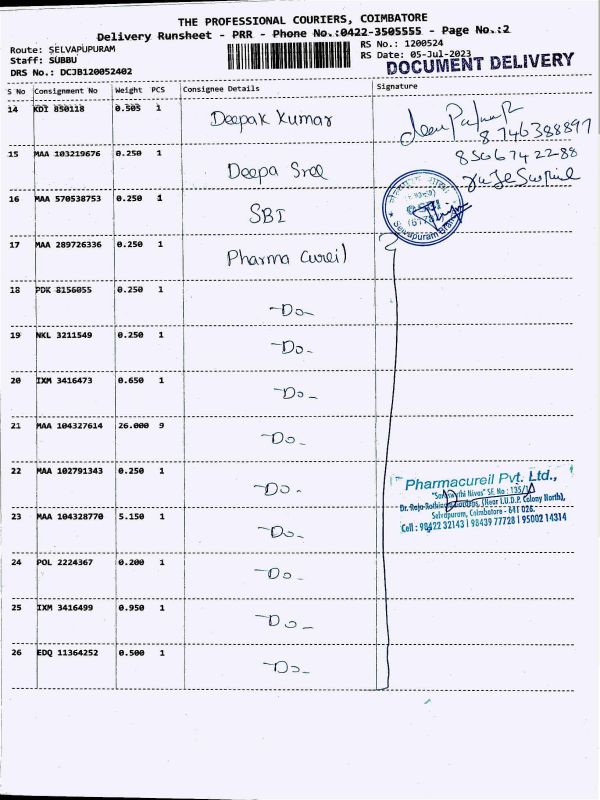 THE PROFESSIONAL COURIERS, COIMBATORE
Delivery Runsheet - PRR - Phone No.:0422-3505555 - Page No.:2
Route: SELVAPUPURAM
Staff: SUBBU
DRS No.: DCJB120052402
RS No.: 1200524
RS Date: 05-Jul-2023
DOCUMENT DELIVERY
S No Consignment No Weight PCS Consignee Details Signature
14 KDI 850118 0.505 1 Deepak Kumar
8746388897
15 MAA 103219676 0.250 1 Deepa Sree
8566742288
16 MAA 570538753 0.250 1 SBI
Selvapuram Branch
17 MAA 289726336 0.250 1 Pharma Cureil
18 PDK 8156055 0.250 1 -Do-
19 NKL 3211549 0.250 1 -Do-
20 IXM 3416473 0.650 1 -Do-
21 MAA 104327614 26.000 9 -Do-
22 MAA 102791343 0.250 1 -Do-
Pharmacureil Pvt. Ltd.,
Nivas" SF. No : 135/1A
Dr. Raja (Near I.U.D.P. Colony North),
Selvapuram, Coimbatore - 641 026.
Cell : 98422 32143 | 98439 77728 | 95002 14314
23 MAA 104328770 5.150 1 -Do-
24 POL 2224367 0.200 1 -Do-
25 IXM 3416499 0.950 1 -Do-
26 EDQ 11364252 0.500 1 -Do-